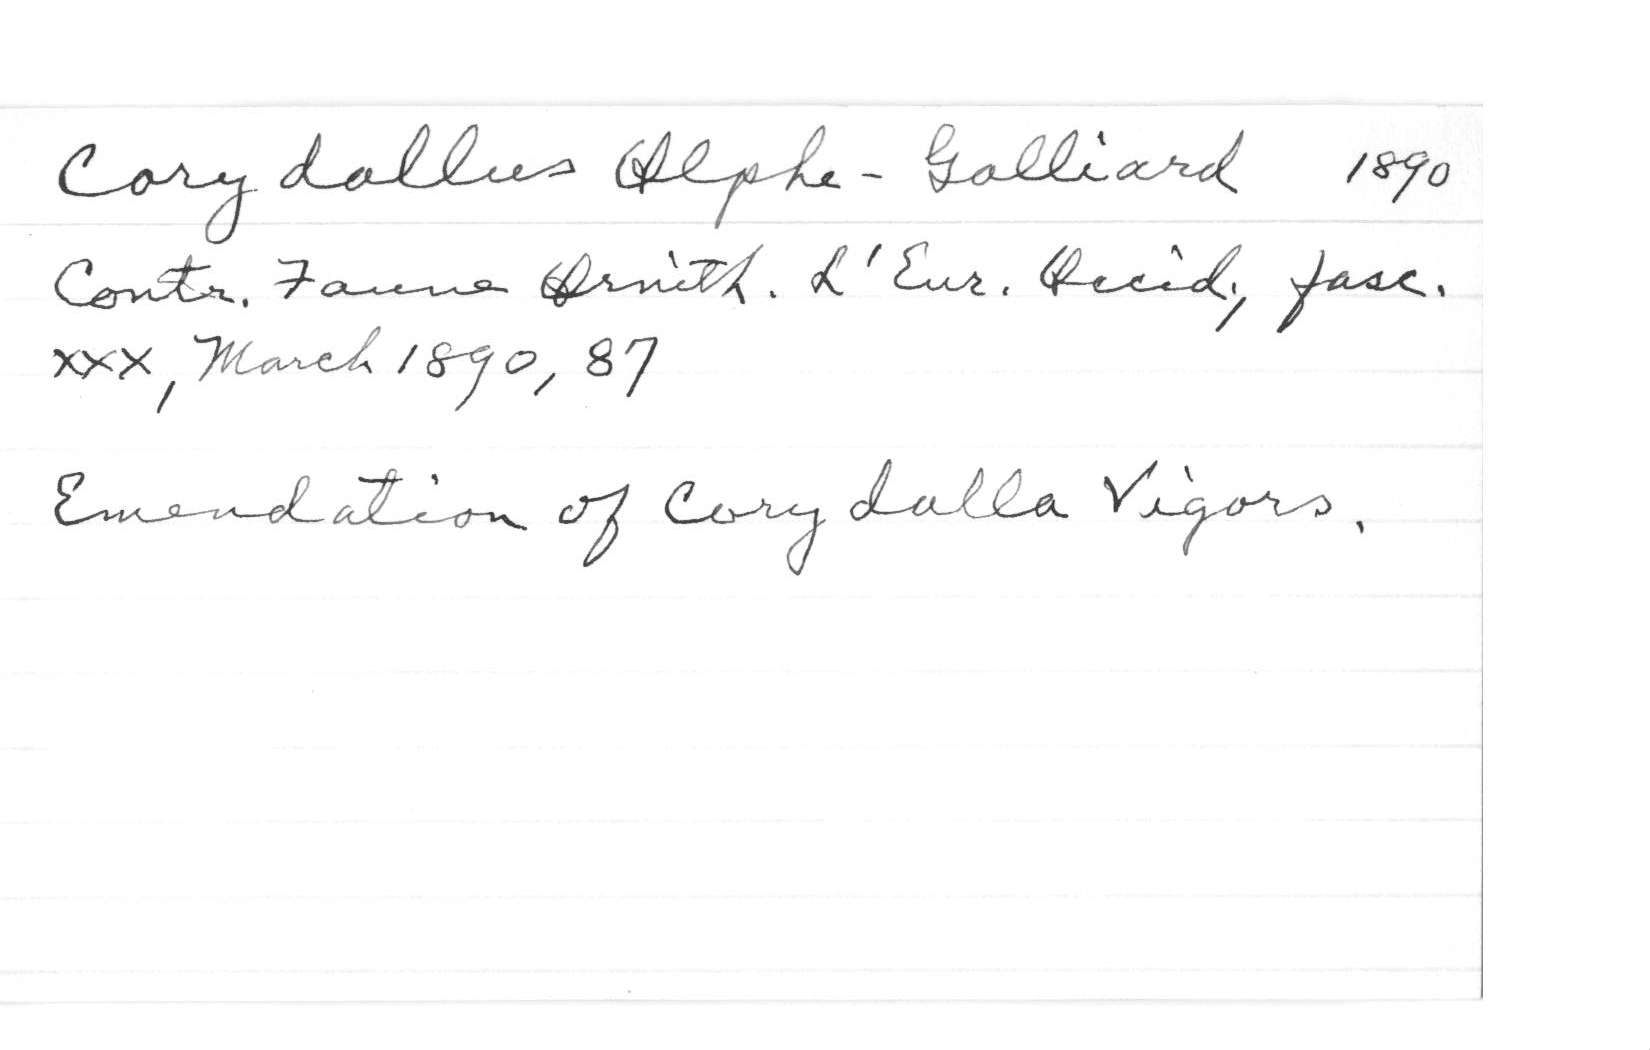 Corydallus Alphe-Galliard 1890
Contr. Faune Ornith. L'Eur. Occid., fasc.
xxx, March 1890, 87
Emendation of Corydalla Vigors.